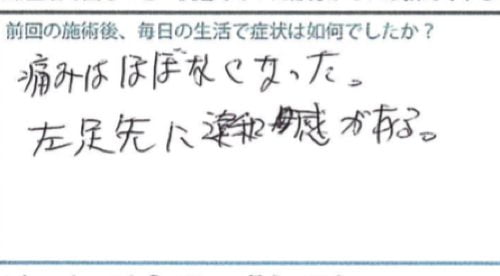 前回の施術後、毎日の生活で症状は如何でしたか？
痛みはほぼなくなった。
左足先に違和感がある。